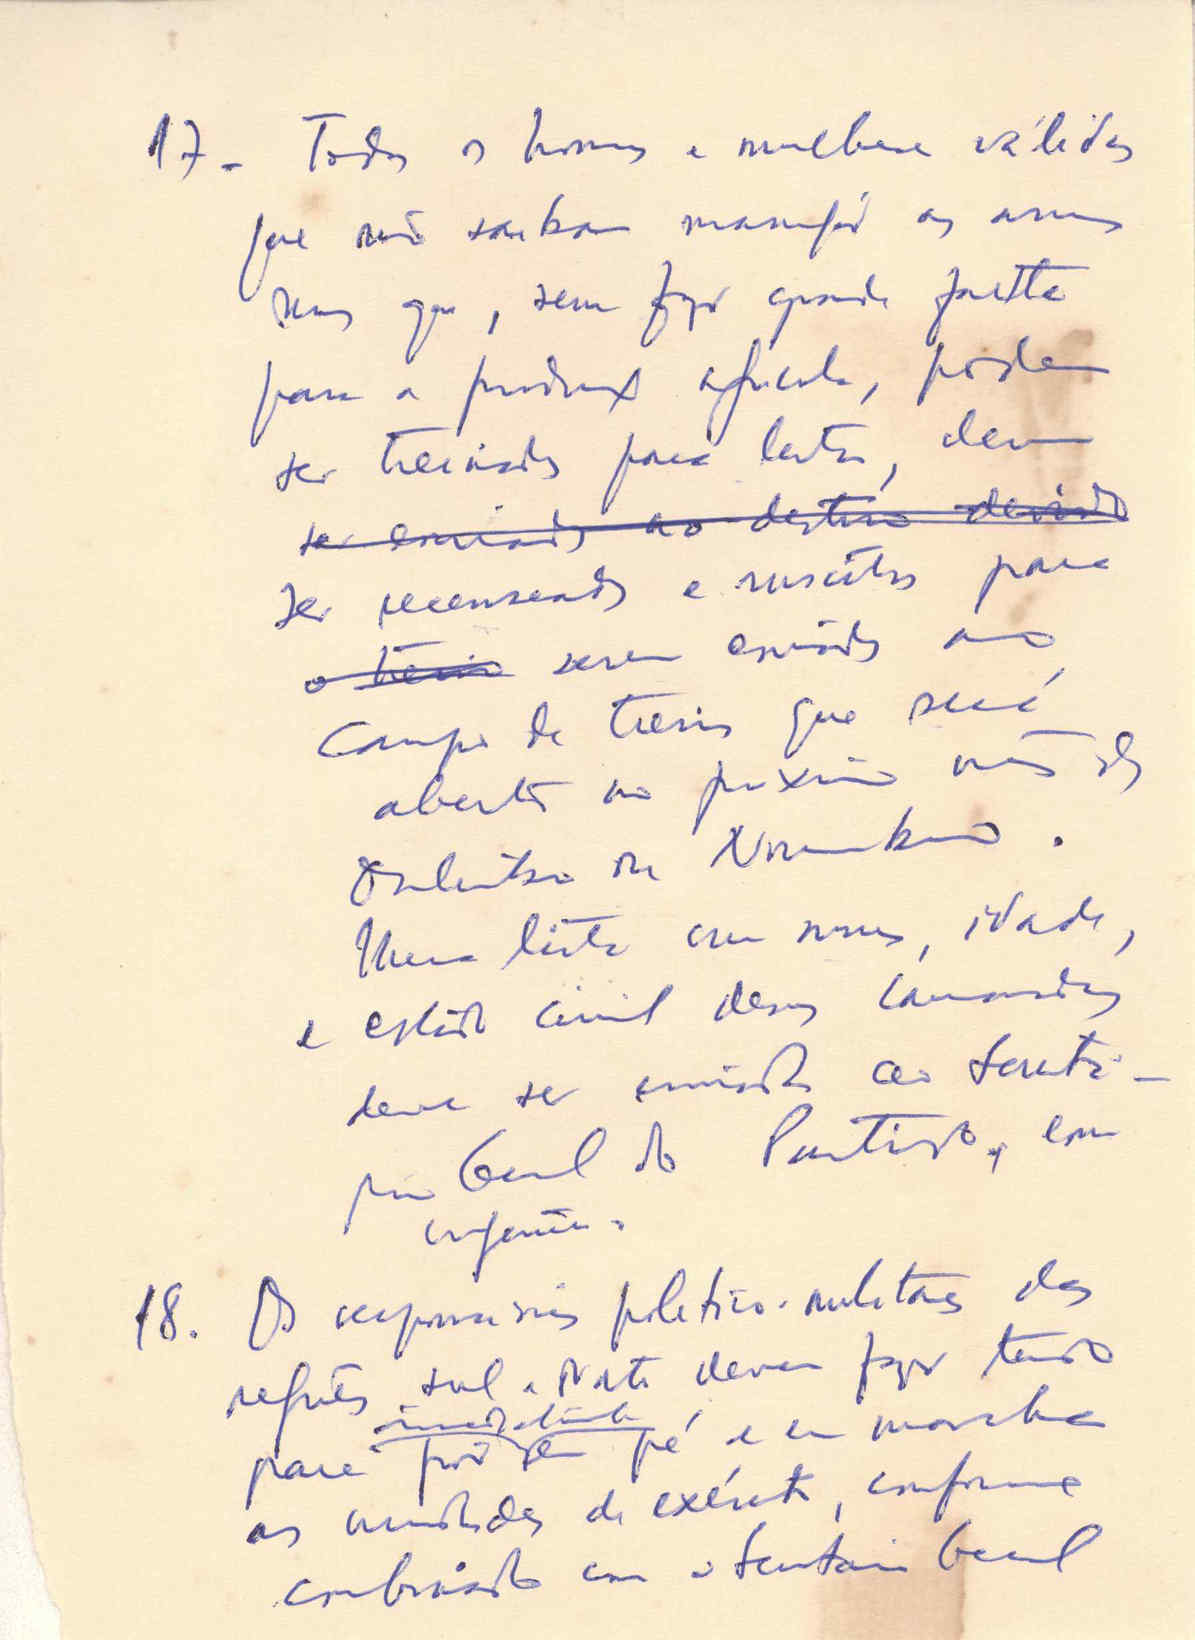 17 - Todos os homens e mulheres válidos
que não saibam manejar as armas
mas que, sem fazer grande falta
para a produção agrícola, podem
ser treinados para luta, devem
ser enviados ao destino devido
ser recenseados e inscritos para
o treino serem enviados ao
Campo de treino que será
aberto no próximo mês de
Outubro ou Novembro.
Uma lista com nomes, idade,
e estado civil desses camaradas
deve ser enviada ao Secretá-
rio Geral do Partido, com
urgência.
18. Os responsáveis político-militares das
regiões sul e Norte devem fazer tudo
imediatamente
para pôr em pé e em marcha
as unidades do exército, conforme
combinado com o Secretário Geral